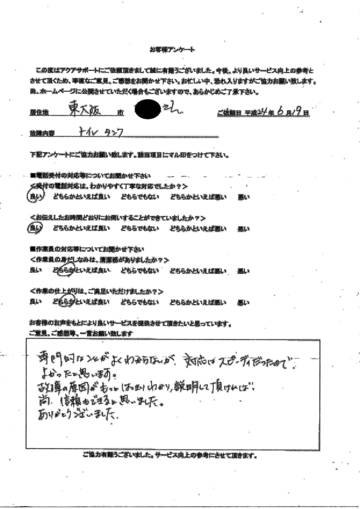 お客様アンケート
この度はアクアサポートにご依頼頂きまして誠に有難うございました。今後、より良いサービス向上の参考と
させて頂くため、率直なご意見、ご感想をお聞かせ下さい。お忙しい中、恐れ入りますがご協力お願い致します。
尚、ホームページに公開させていただく場合もございますので、あらかじめご了承下さい。
居住地 東大阪 市 さん ご依頼日 平成24年6月19日
故障内容 トイレ タンク
下記アンケートにご協力お願い致します。該当項目にマル印をつけて下さい。
■電話受付の対応等についてお聞かせ下さい
<受付の電話対応は、わかりやすく丁寧な対応でしたか?>
良い どちらかといえば良い どちらでもない どちらかといえば悪い 悪い
<お伝えしたお時間どおりにお伺いすることができていましたか?>
良い どちらかといえば良い どちらでもない どちらかといえば悪い 悪い
■作業員の対応等についてお聞かせ下さい
<作業員の身だしなみは、清潔感がありましたか?>
良い どちらかといえば良い どちらでもない どちらかといえば悪い 悪い
<作業の仕上がりは、ご満足いただけましたか?>
良い どちらかといえば良い どちらでもない どちらかといえば悪い 悪い
お客様のお声をもとにより良いサービスを提供させて頂きたいと思っています。
ご意見、ご感想等、一言お願い致します
専門的なことがよくわからないが、対応はスピーディだったので
よかったと思います。
故障の原因がもっとはっきりわかり、説明して頂ければ
尚、信頼もできると思いました。
ありがとうございました。
ご協力有難うございました。サービス向上の参考にさせて頂きます。